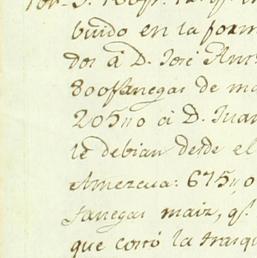 buido en la form
dos á D. Jose Ant
800 fanegas de m
205 no á D. Juan
le debian desde el
Amezcua: 675 no
fanegas maiz, q.
que costó la trasq